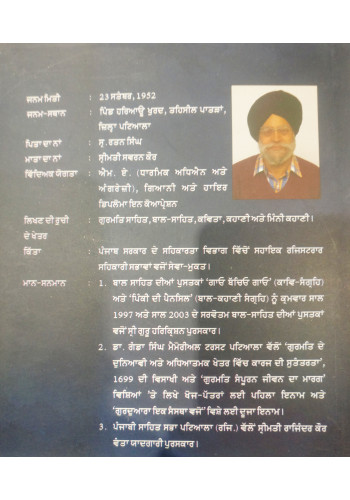 ਜਨਮ ਮਿਤੀ : 23 ਸਤੰਬਰ, 1952
ਜਨਮ-ਸਥਾਨ : ਪਿੰਡ ਹਰਿਆਊ ਖੁਰਦ, ਤਹਿਸੀਲ ਪਾਤੜਾਂ,
ਜ਼ਿਲ੍ਹਾ ਪਟਿਆਲਾ
ਪਿਤਾ ਦਾ ਨਾਂ : ਸ੍ਰ. ਰਤਨ ਸਿੰਘ
ਮਾਤਾ ਦਾ ਨਾਂ : ਸ੍ਰੀਮਤੀ ਸਵਰਨ ਕੌਰ
ਵਿੱਦਿਅਕ ਯੋਗਤਾ : ਐਮ. ਏ. (ਧਾਰਮਿਕ ਅਧਿਐਨ ਅਤੇ
ਅੰਗਰੇਜ਼ੀ), ਗਿਆਨੀ ਅਤੇ ਹਾਇਰ
ਡਿਪਲੋਮਾ ਇਨ ਕੋਆਪ੍ਰੇਸ਼ਨ
ਲਿਖਣ ਦੀ ਰੁਚੀ : ਗੁਰਮਤਿ ਸਾਹਿਤ, ਬਾਲ-ਸਾਹਿਤ, ਕਵਿਤਾ, ਕਹਾਣੀ ਅਤੇ ਮਿੰਨੀ ਕਹਾਣੀ।
ਦੇ ਖੇਤਰ
ਕਿੱਤਾ : ਪੰਜਾਬ ਸਰਕਾਰ ਦੇ ਸਹਿਕਾਰਤਾ ਵਿਭਾਗ ਵਿੱਚੋਂ ਸਹਾਇਕ ਰਜਿਸਟਰਾਰ
ਸਹਿਕਾਰੀ ਸਭਾਵਾਂ ਵਜੋਂ ਸੇਵਾ-ਮੁਕਤ।
ਮਾਨ-ਸਨਮਾਨ : 1. ਬਾਲ ਸਾਹਿਤ ਦੀਆਂ ਪੁਸਤਕਾਂ 'ਗਾਓ ਬੱਚਿਓ ਗਾਓ' (ਕਾਵਿ-ਸੰਗ੍ਰਹਿ)
ਅਤੇ 'ਪਿੰਕੀ ਦੀ ਪੈਨਸਿਲ' (ਬਾਲ-ਕਹਾਣੀ ਸੰਗ੍ਰਹਿ) ਨੂੰ ਕ੍ਰਮਵਾਰ ਸਾਲ
1997 ਅਤੇ ਸਾਲ 2003 ਦੇ ਸਰਵੋਤਮ ਬਾਲ-ਸਾਹਿਤ ਦੀਆਂ ਪੁਸਤਕਾਂ
ਵਜੋਂ ਸ੍ਰੀ ਗੁਰੂ ਹਰਿਕ੍ਰਿਸ਼ਨ ਪੁਰਸਕਾਰ।
2. ਡਾ. ਗੰਡਾ ਸਿੰਘ ਮੈਮੋਰੀਅਲ ਟਰਸਟ ਪਟਿਆਲਾ ਵੱਲੋਂ 'ਗੁਰਮਤਿ ਦੇ
ਦੁਨਿਆਵੀ ਅਤੇ ਅਧਿਆਤਮਕ ਖੇਤਰ ਵਿੱਚ ਕਾਰਜ ਦੀ ਸੁਤੰਤਰਤਾ',
1699 ਦੀ ਵਿਸਾਖੀ ਅਤੇ 'ਗੁਰਮਤਿ ਸੰਪੂਰਨ ਜੀਵਨ ਦਾ ਮਾਰਗ'
ਵਿਸ਼ਿਆਂ 'ਤੇ ਲਿਖੇ ਖੋਜ-ਪੱਤਰਾਂ ਲਈ ਪਹਿਲਾ ਇਨਾਮ ਅਤੇ
'ਗੁਰਦੁਆਰਾ ਇਕ ਸੰਸਥਾ ਵਜੋਂ' ਵਿਸ਼ੇ ਲਈ ਦੂਜਾ ਇਨਾਮ।
3. ਪੰਜਾਬੀ ਸਾਹਿਤ ਸਭਾ ਪਟਿਆਲਾ (ਰਜਿ.) ਵੱਲੋਂ ਸ੍ਰੀਮਤੀ ਰਾਜਿੰਦਰ ਕੌਰ
ਵੰਤਾ ਯਾਦਗਾਰੀ ਪੁਰਸਕਾਰ।